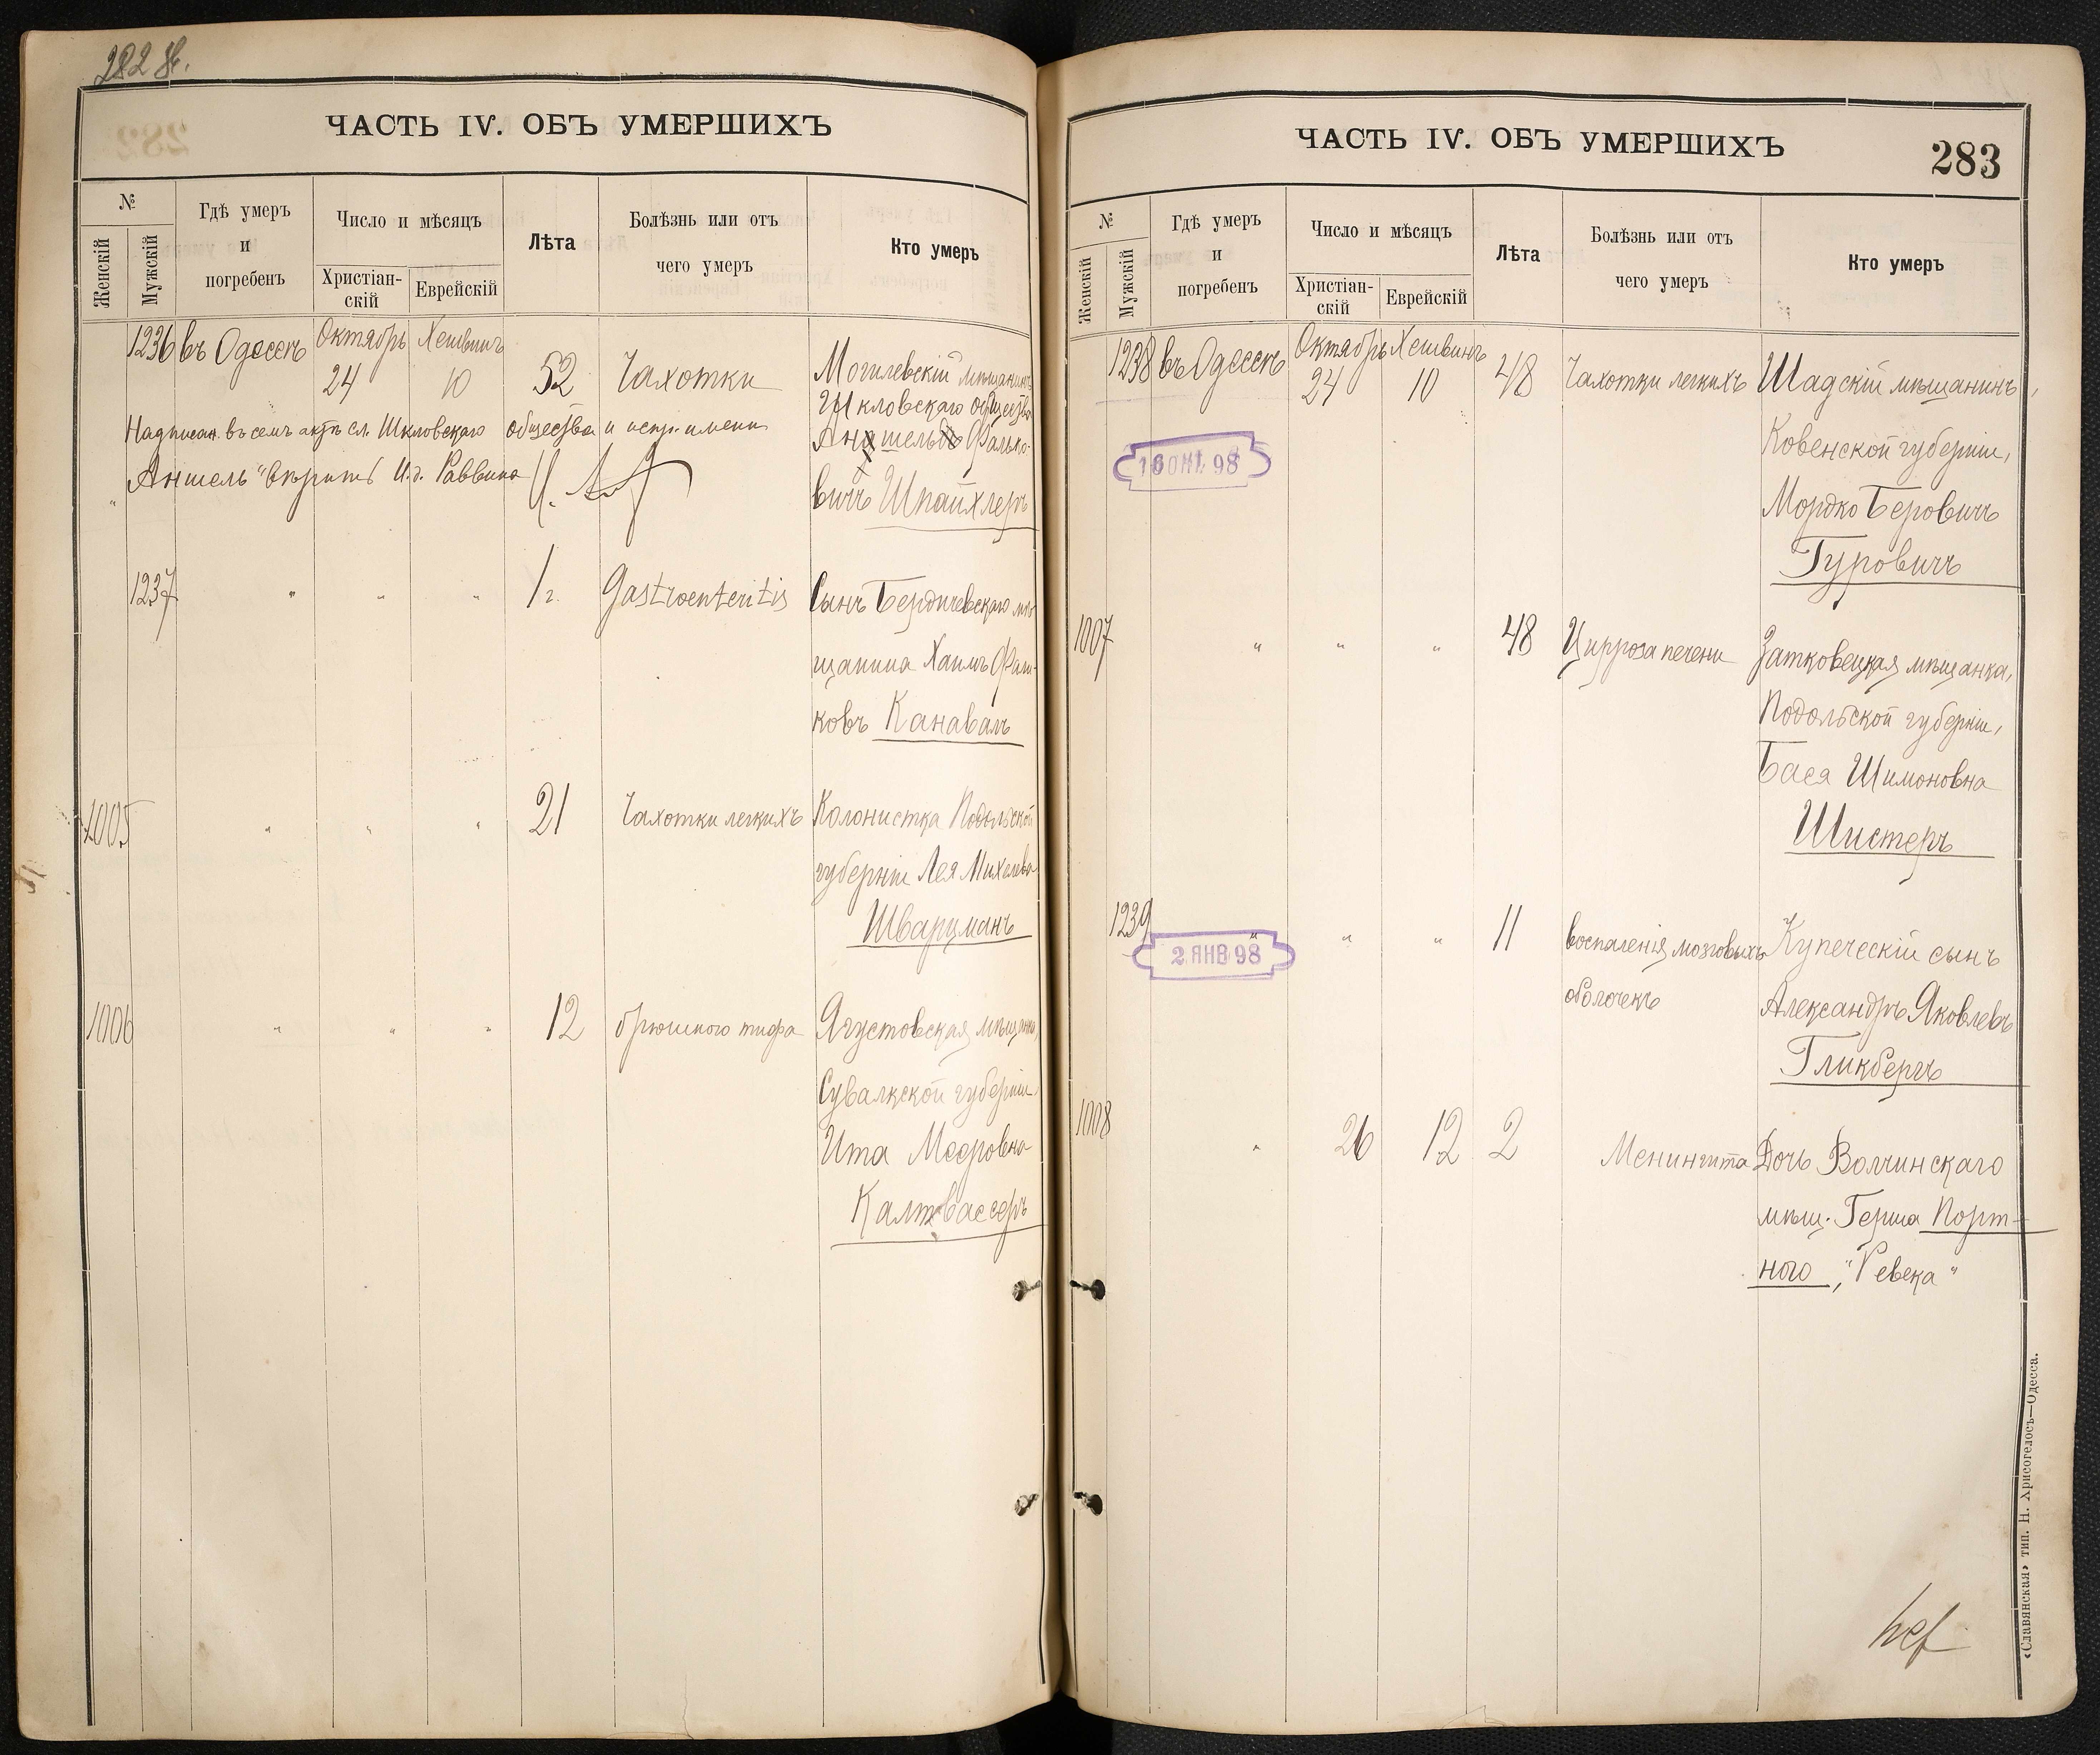 282 об.
ЧАСТЬ IV. ОБЪ УМЕРШИХЪ
№
Женскій
Мужскій
Гдѣ умеръ
и
погребенъ
Число и мѣсяцъ
Христіан-
скій
Еврейскій
Лѣта
Болѣзнь или отъ
чего умеръ
Кто умеръ
1236 въ Одессѣ Октябрь 24 Хешвинъ 10 52 Чахотки Могилевскій мѣщанинъ
Шкловскаго общества
Аншель Фалько-
вичъ Шпайхлеръ
Надписан. въ семъ актѣ сл. Шкловскаго общества и испр. имени
Аншель" вѣрить И.д. Раввина
1237 " " " 1 г. Gastroenteritis Сынъ Бердичевскаго мѣ-
щанина Хаимъ Фаль-
ковъ Канаваль
1005 " " " 21 Чахотки легкихъ Колонистка Подольской
губерніи Лея Михелева
Шварцманъ
1006 " " " 12 брюшного тифа Августовская мѣщанка,
Сувалкской губерніи,
Ита Мееровна
Калтвассеръ
ЧАСТЬ IV. ОБЪ УМЕРШИХЪ
283
№
Женскій
Мужскій
Гдѣ умеръ
и
погребенъ
Число и мѣсяцъ
Христіан-
скій
Еврейскій
Лѣта
Болѣзнь или отъ
чего умеръ
Кто умеръ
1238 въ Одессѣ Октябрь 24 Хешвинъ 10 48 Чахотки легкихъ Шадскій мѣщанинъ,
Ковенской губерніи,
Мордко Беровичъ
Гуровичъ
16 ОКТ. 98
1007 " " " 48 Цирроза печени Затковецкая мѣщанка,
Подольской губерніи,
Бася Шимоновна
Шистеръ
1239 " " " 11 воспаленія мозговыхъ Купеческій сынъ
оболочекъ Александръ Яковлевъ
Гликбергъ
2 ЯНВ 98
1008 " 26 12 2 Менингита Дочь Волчинскаго
мѣщ. Герша Порт-
ного, "Ревека"
«Славянская» тип. Н. Хрисогелосъ—Одесса.